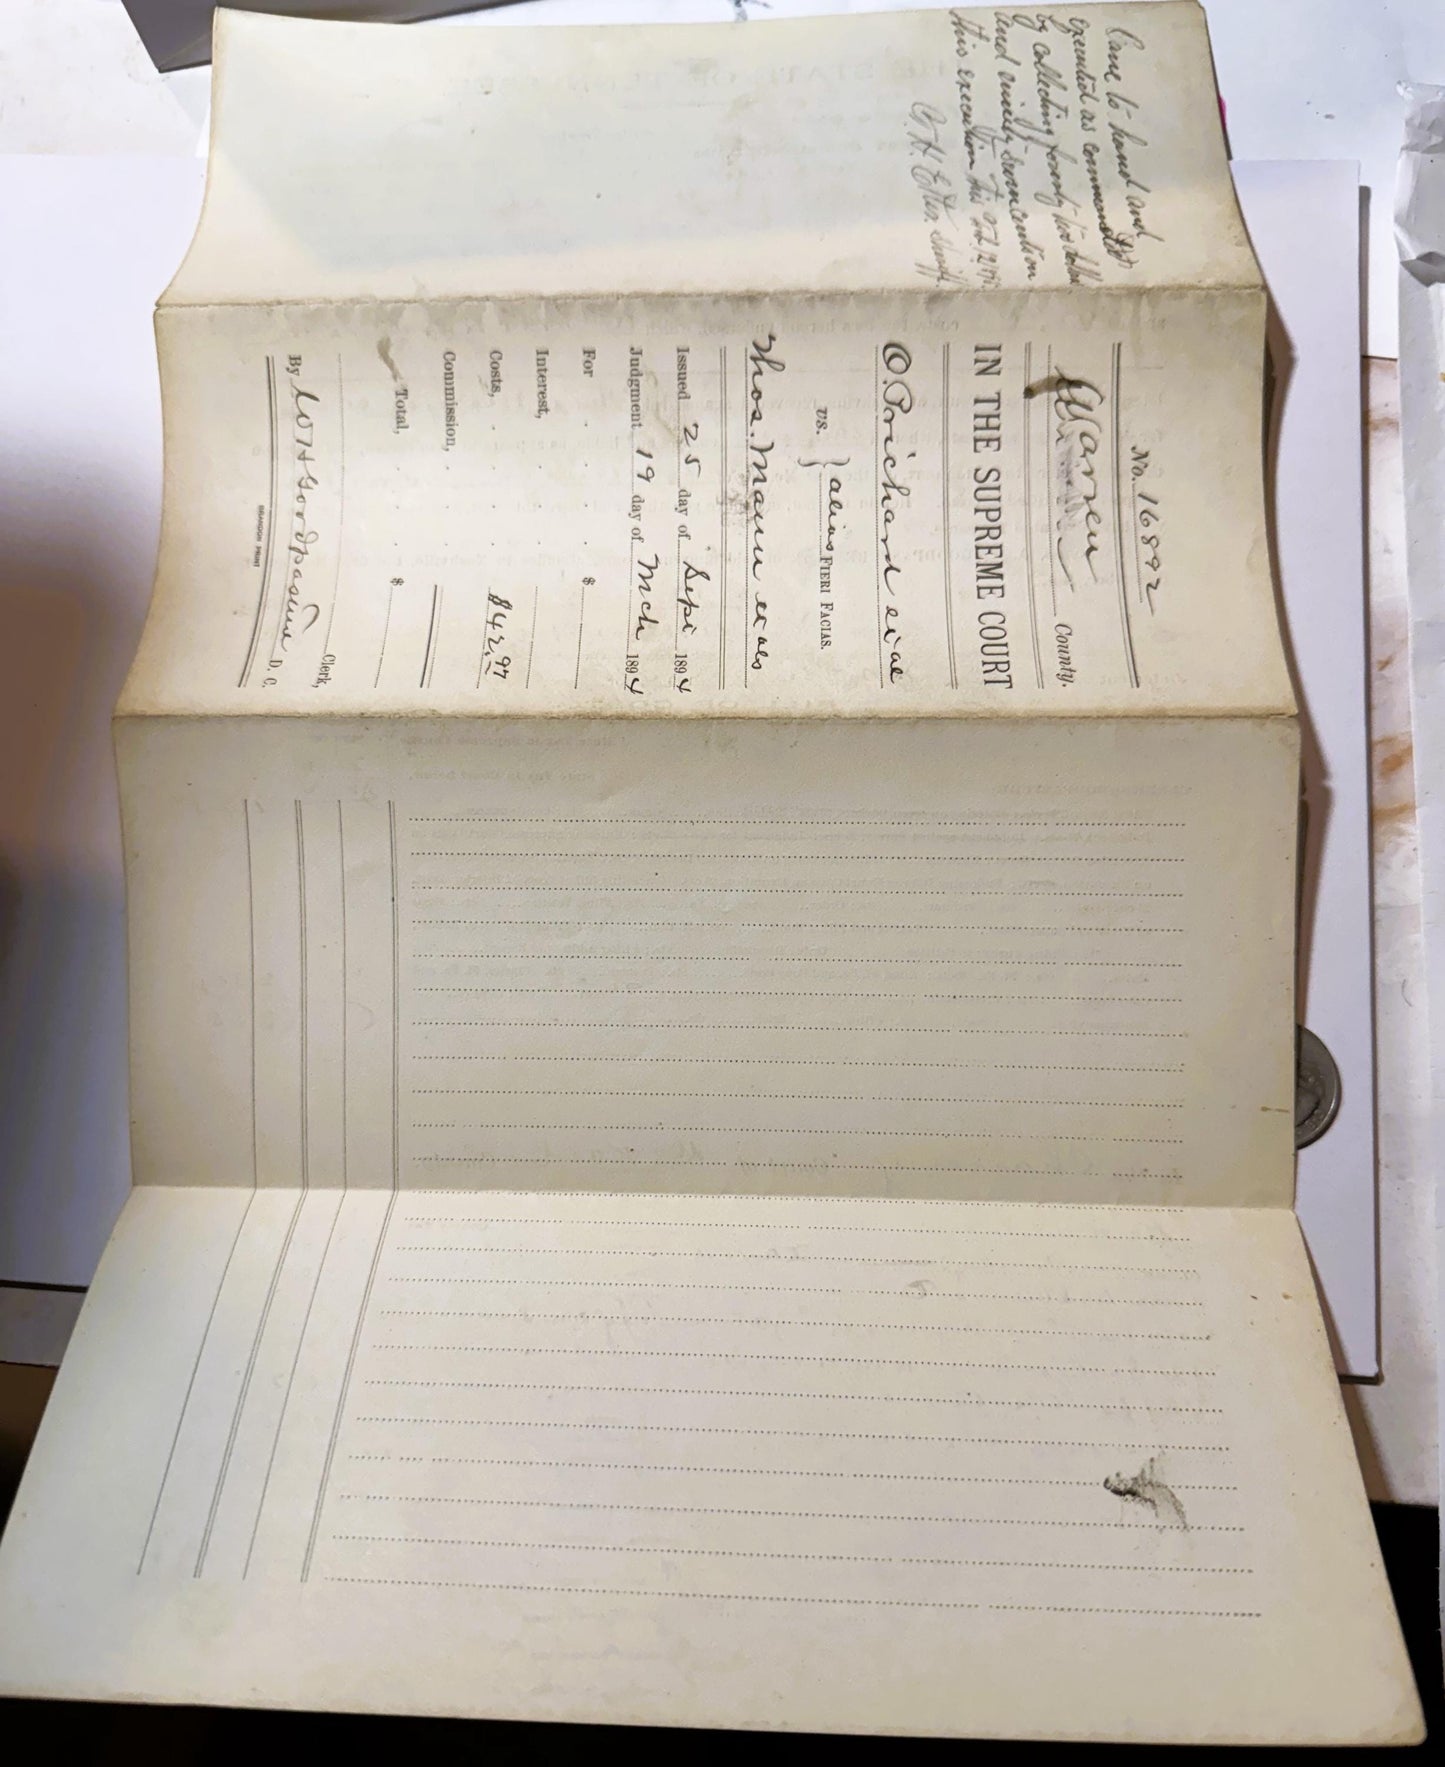 Came to hand and
executed as commanded
by collecting fourty two dollars
and ninety seven cents on
this execution this
Sheriff.
No. 16892
Warren County.
IN THE SUPREME COURT
O. Prichard et al
vs. } alias FIERI FACIAS.
Thos. Mann et als
Issued 25 day of Sept 1894
Judgment 19 day of Mch 1894
For $
Interest,
Costs, $42.97
Commission,
Total, $
Clerk,
By W H Goodpasture D. C.
BRANDON PRINT